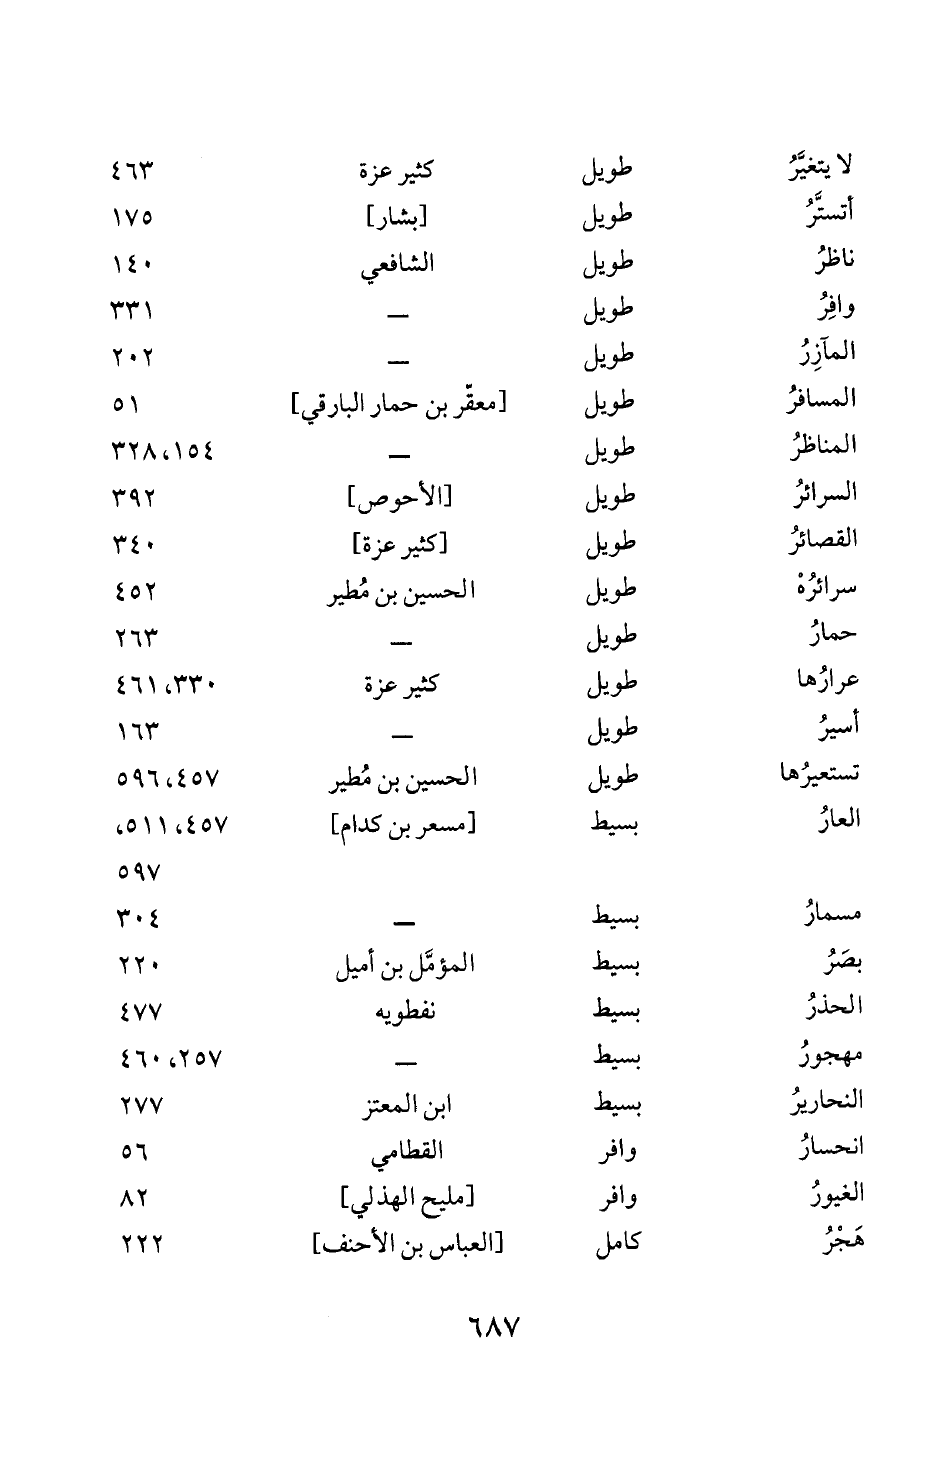 لا يتغيَّرُ طويل كثير عزة ٤٦٣
أتستَّرُ طويل [بشار] ١٧٥
ناظرُ طويل الشافعي ١٤٠
وافِرُ طويل — ٣٣١
المآزِرُ طويل — ٢٠٢
المسافرُ طويل [معقّر بن حمار البارقي] ٥١
المناظرُ طويل — ١٥٤، ٣٢٨
السرائرُ طويل [الأحوص] ٣٩٢
القصائرُ طويل [كثير عزة] ٣٤٠
سرائرُهْ طويل الحسين بن مُطير ٤٥٢
حمارُ طويل — ٢٦٣
عرارُها طويل كثير عزة ٣٣٠، ٤٦١
أسيرُ طويل — ١٦٣
تستعيرُها طويل الحسين بن مُطير ٤٥٧، ٥٩٦
العارُ بسيط [مسعر بن كدام] ٤٥٧، ٥١١،
٥٩٧
مسمارُ بسيط — ٣٠٤
بصَرُ بسيط المؤمَّل بن أميل ٢٢٠
الحذرُ بسيط نفطويه ٤٧٧
مهجورُ بسيط — ٢٥٧، ٤٦٠
النحاريرُ بسيط ابن المعتز ٢٧٧
انحسارُ وافر القطامي ٥٦
الغيورُ وافر [مليح الهذلي] ٨٢
هَجْرُ كامل [العباس بن الأحنف] ٢٢٢
٦٨٧